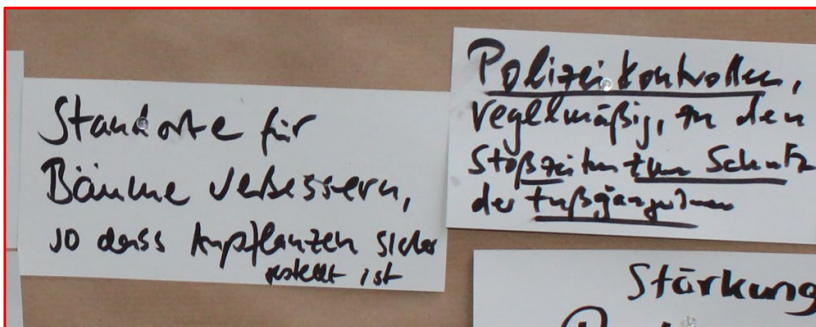 Standorte für
Bäume verbessern,
so dass Anpflanzen sicher
gestellt ist
Polizeikontrollen,
regelmäßig, zu den
Stoßzeiten zum Schutz
der Fußgänger
Stärkung